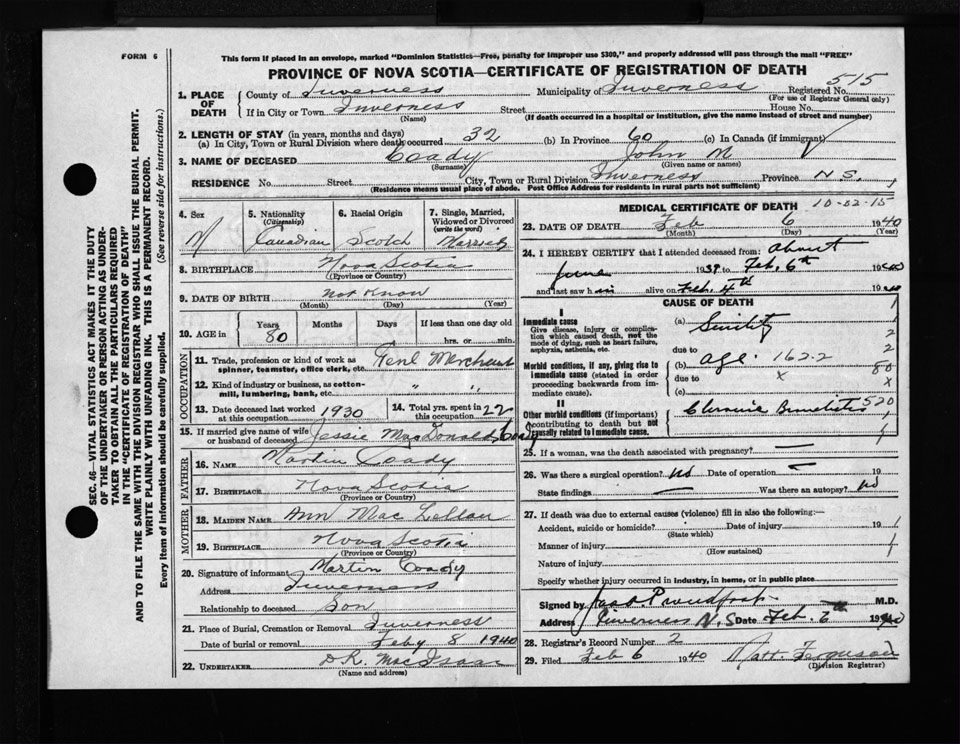 FORM 6
This form if placed in an envelope, marked "Dominion Statistics—Free, penalty for improper use $300," and properly addressed will pass through the mail "FREE"
PROVINCE OF NOVA SCOTIA—CERTIFICATE OF REGISTRATION OF DEATH
515
1. PLACE OF DEATH
County of Inverness Municipality of Inverness Registered No.
(For use of Registrar General only)
If in City or Town Inverness Street House No.
(Name) (If death occurred in a hospital or institution, give the name instead of street and number)
2. LENGTH OF STAY (in years, months and days)
(a) In City, Town or Rural Division where death occurred 32 (b) In Province 60 (c) In Canada (if immigrant)
3. NAME OF DECEASED Coady John
(Surname) (Given name or names)
RESIDENCE No. Street City, Town or Rural Division Inverness Province N S.
(Residence means usual place of abode. Post Office Address for residents in rural parts not sufficient)
4. Sex M
5. Nationality (Citizenship) Canadian
6. Racial Origin Scotch
7. Single, Married, Widowed or Divorced (write the word) Married
8. BIRTHPLACE Nova Scotia
(Province or Country)
9. DATE OF BIRTH not Know
(Month) (Day) (Year)
10. AGE in Years 80 Months Days If less than one day old
hrs. or min.
OCCUPATION
11. Trade, profession or kind of work as spinner, teamster, office clerk, etc. Genl Merchant
12. Kind of industry or business, as cotton-mill, lumbering, bank, etc. " "
13. Date deceased last worked at this occupation 1930
14. Total yrs. spent in this occupation 22
15. If married give name of wife or husband of deceased Jessie MacDonald Coady
FATHER
16. NAME Martin Coady
17. BIRTHPLACE Nova Scotia
(Province or Country)
MOTHER
18. MAIDEN NAME Ann Mac Lellan
19. BIRTHPLACE Nova Scotia
(Province or Country)
20. Signature of informant Martin Coady
Address Inverness
Relationship to deceased Son
21. Place of Burial, Cremation or Removal Inverness
Date of burial or removal Feby 8 1940
22. UNDERTAKER D R. MacIsaac
(Name and address)
MEDICAL CERTIFICATE OF DEATH 10-02-15
23. DATE OF DEATH Feb 6 1940
(Month) (Day) (Year)
24. I HEREBY CERTIFY that I attended deceased from: About
June 1939 to Feb. 6th 1940
and last saw h im alive on Feb. 4th 1940
CAUSE OF DEATH
I
Immediate cause
Give disease, injury or complication which caused death, not the mode of dying, such as heart failure, asphyxia, asthenia, etc.
(a) Senility
due to
Morbid conditions, if any, giving rise to immediate cause (stated in order proceeding backwards from immediate cause).
(b) age. 162-2
due to x
(c)
1
2
2
80
x
II
Other morbid conditions (if important) contributing to death but not causally related to immediate cause.
Chronic Bronchitis 520
25. If a woman, was the death associated with pregnancy? —
26. Was there a surgical operation? no Date of operation — 19
State findings — Was there an autopsy? no
27. If death was due to external causes (violence) fill in also the following:—
Accident, suicide or homicide? Date of injury 19
(State which)
Manner of injury
(How sustained)
Nature of injury
Specify whether injury occurred in industry, in home, or in public place
Signed by Proudfoot M.D.
Address Inverness N. S Date Feb. 6th 1940
28. Registrar's Record Number 2
29. Filed Feb 6 1940 Ferguson
(Division Registrar)
SEC. 46—VITAL STATISTICS ACT MAKES IT THE DUTY
OF THE UNDERTAKER OR PERSON ACTING AS UNDER-
TAKER TO OBTAIN ALL THE PARTICULARS REQUIRED
IN THE "CERTIFICATE OF REGISTRATION OF DEATH"
AND TO FILE THE SAME WITH THE DIVISION REGISTRAR WHO SHALL ISSUE THE BURIAL PERMIT.
WRITE PLAINLY WITH UNFADING INK. THIS IS A PERMANENT RECORD.
Every item of information should be carefully supplied. (See reverse side for instructions.)